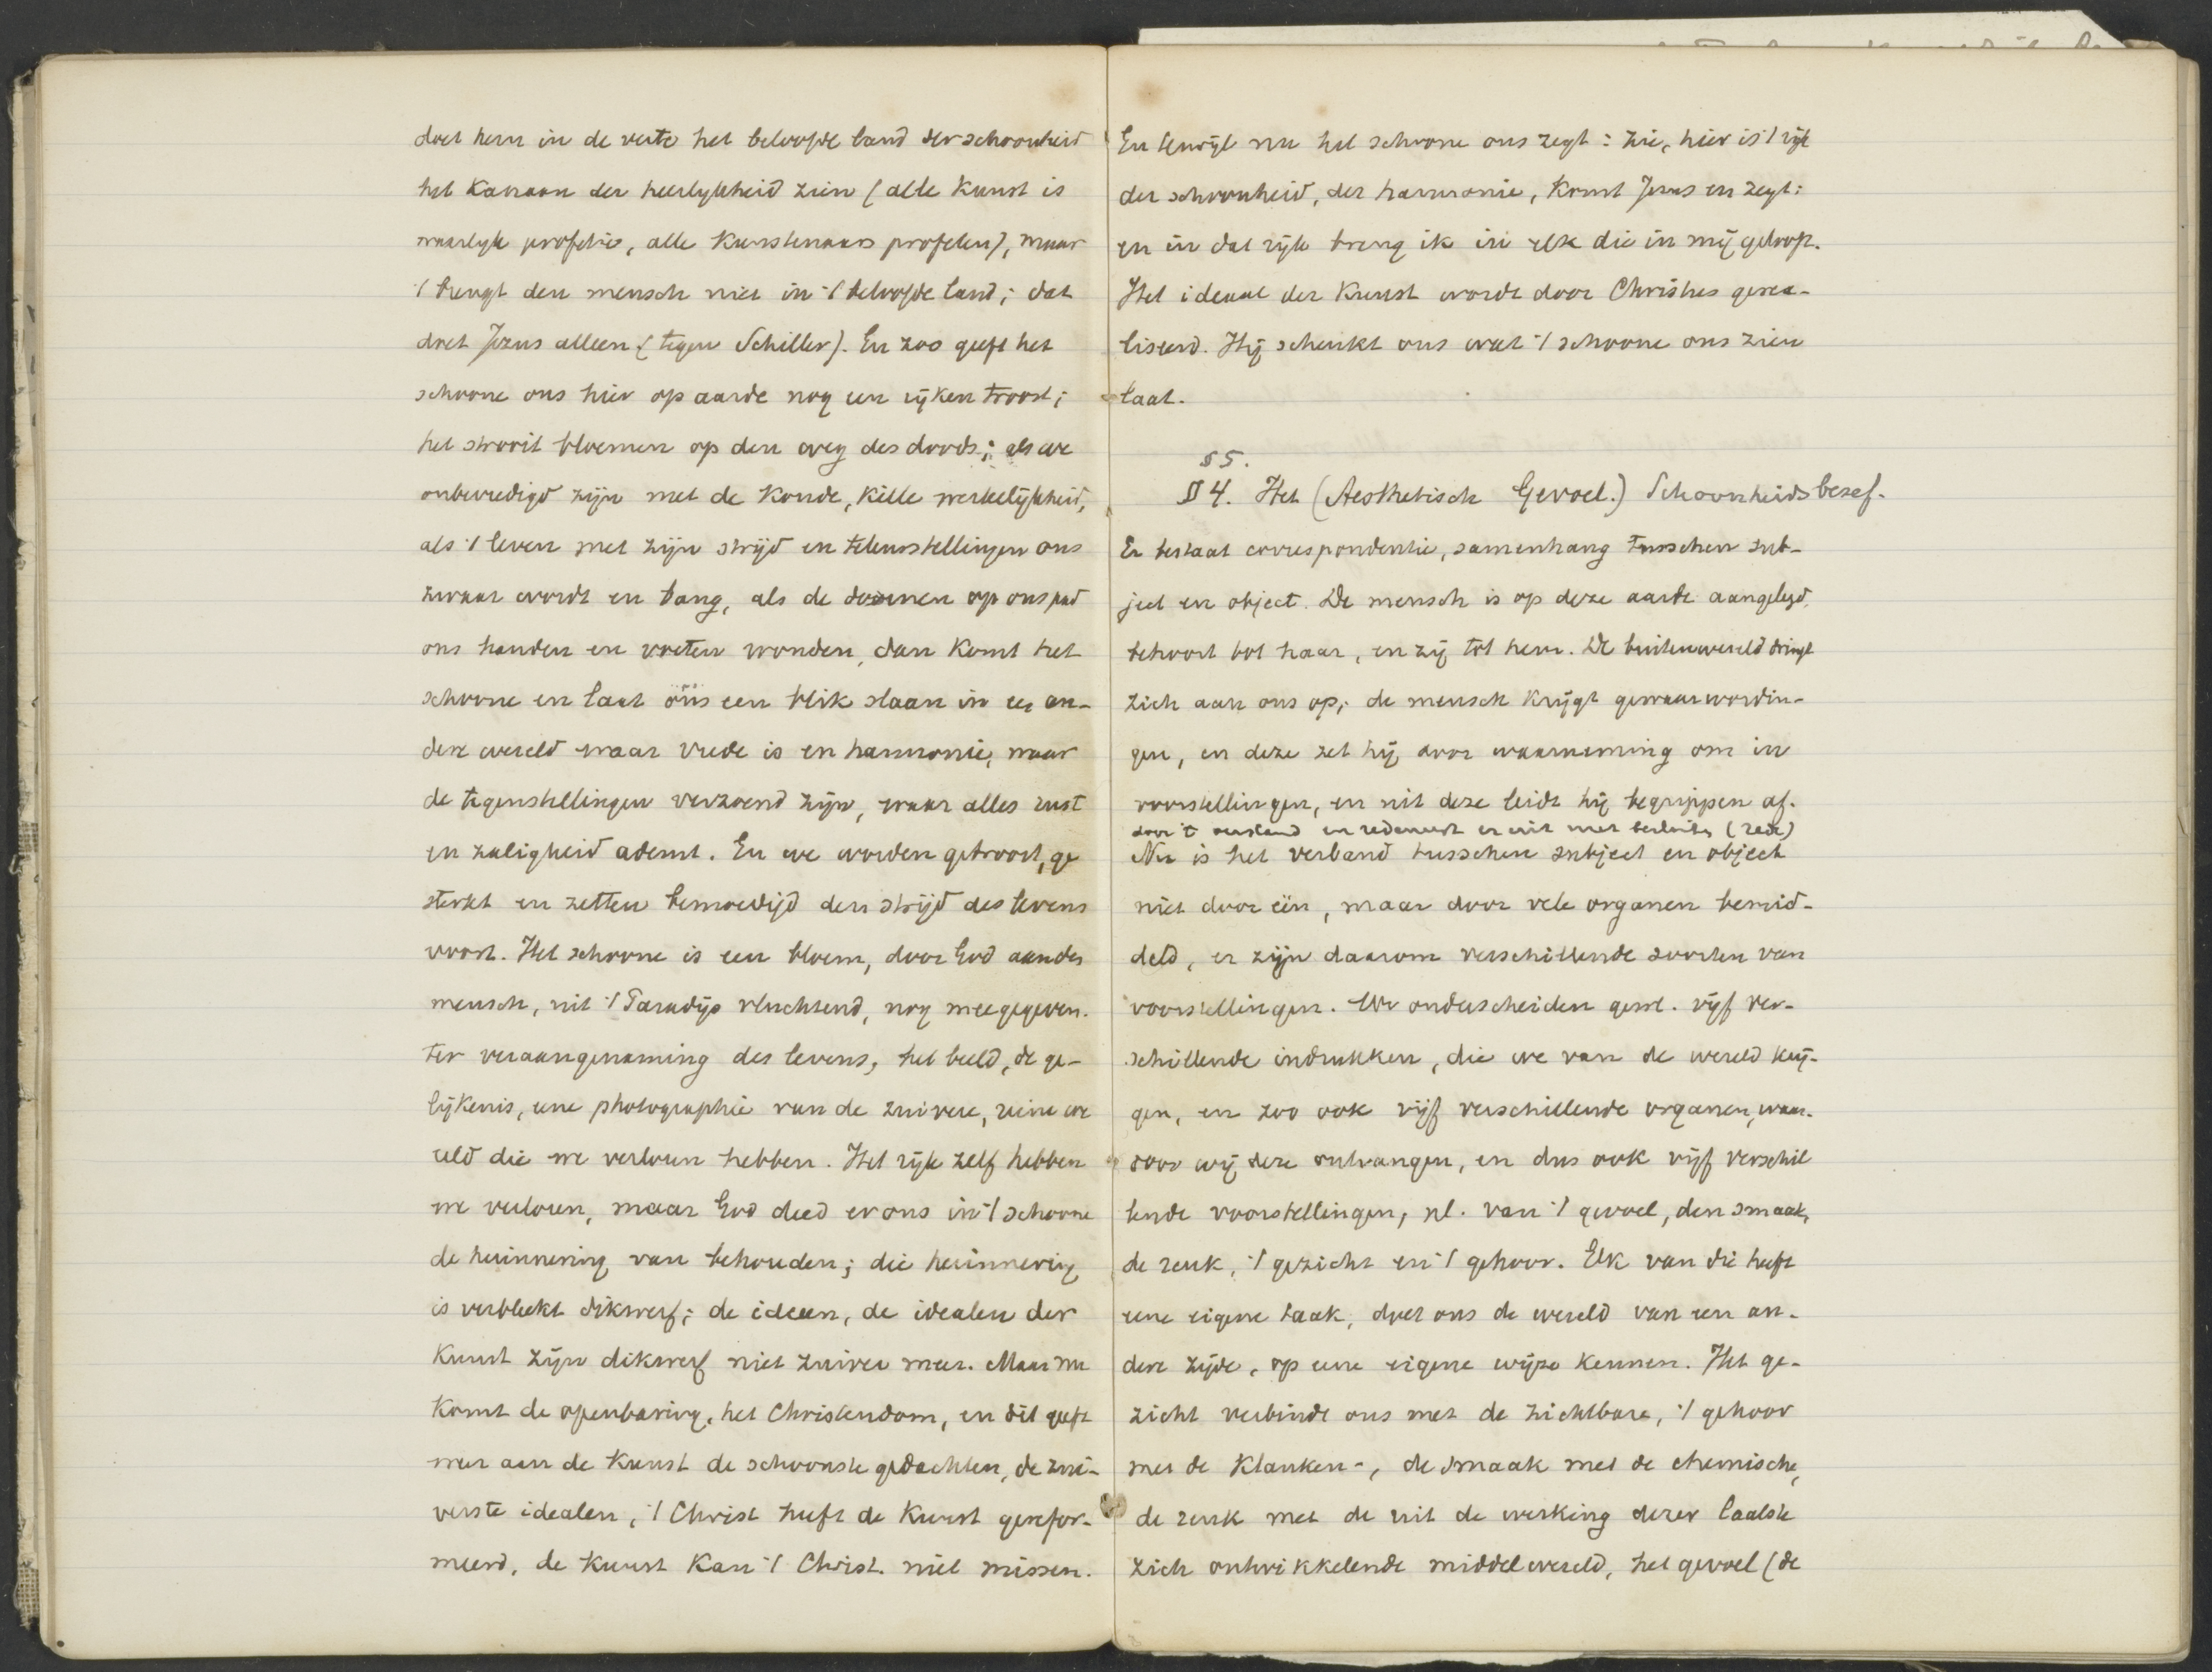 doet hem in de verte het beloofde land der schoonheid
het Kanaan der heerlijkheid zien (alle Kunst is
waarlijk profetie, alle Kunstenaars profeten), maar
't brengt den mensch niet in 't beloofde land; dat
doet Jezus alleen (tegen Schiller). En zoo geeft het
schoone ons hier op aarde nog een rijken troost;
het strooit bloemen op den weg des doods; als we
onbevredigd zijn met de Koude, Kille werkelijkheid,
als 't leven met zijn strijd en teleurstellingen ons
zwaar wordt en bang, als de doornen op ons pad
ons handen en voeten wonden, dan Komt het
schoone en laat ons een blik slaan in ee an-
dere wereld waar vrede is en harmonie, waar
de tegenstellingen verzoend zijn, waar alles rust
en zaligheid ademt. En we worden getroost, ge
sterkt en zetten bemoedigd den strijd des levens
voort. Het schoone is een bloem, door God aan den
mensch, uit 't Paradijs vluchtend, nog meegegeven.
ter veraangenaming des levens, het beeld, de ge-
lijkenis, eene photographie van de zuivere, reine we
reld die we verloren hebben. Het rijk zelf hebben
we verloren, maar God deed er ons in 't schoone
de herinnering van behouden; die herinnering
is verbleekt dikwerf; de ideeen, de idealen der
Kunst zijn dikwerf niet zuiver meer. Maar nu
Komt de openbaring, het Christendom, en dit geeft
weer aan de Kunst de schoonste gedachten, de zui-
verste idealen, 't Christ heeft de Kunst gerefor-
meerd, de Kunst Kan 't Christ. niet missen.
En terwijl nu het schoone ons zegt: zie, hier is 't rijk
der schoonheid, der harmonie, Komt Jezus en zegt:
en in dat rijk breng ik in elk die in mij gelooft.
Het ideaal der Kunst wordt door Christus gerea-
liseerd. Hij schenkt ons wat 't schoone ons zien
laat.
§ 5.
§ 4. Het (Aesthetisch Gevoel.) Schoonheidsbesef.
Er bestaat correspondentie, samenhang tusschen sub-
ject en object. De mensch is op deze aarde aangelegd,
behoort tot haar, en zij tot hem. De buitenwereld dringt
zich aan ons op; de mensch Krijgt gewaarwordin-
gen, en deze zet hij door waarneming om in
voorstellingen, en uit deze leidt hij begrippen af.
door 't verstand en redeneert er uit met besluiten (rede)
Nu is het verband tusschen subject en object
niet door één, maar door vele organen bemid-
deld, er zijn daarom verschillende soorten van
voorstellingen. We onderscheiden gew. vijf ver-
schillende indrukken, die we van de wereld krij-
gen, en zoo ook vijf verschillende organen, waar-
door wij deze ontvangen, en dus ook vijf verschil
lende voorstellingen, nl. van 't gevoel, den smaak,
de reuk, 't gezicht en 't gehoor. Elk van die heeft
eene eigene taak, doet ons de wereld van een an-
dere zijde, op eene eigene wijze kennen. Het ge-
zicht verbindt ons met de zichtbare, 't gehoor
met de Klanken-, de smaak met de chemische,
de reuk met de uit de werking dezer laatste
zich ontwikkelende middelwereld, het gevoel (de